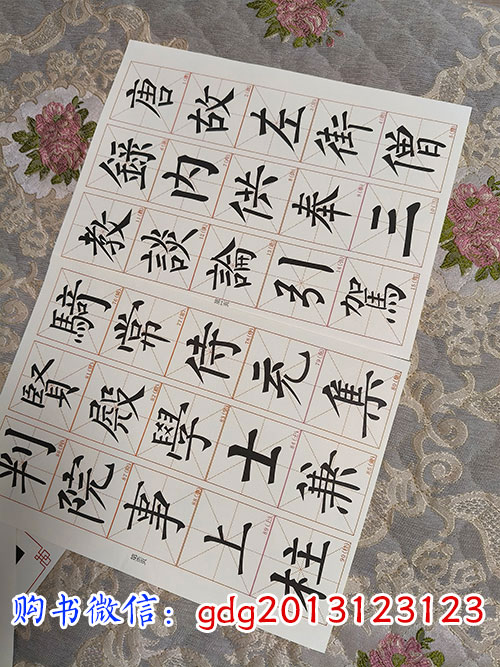 唐故左街僧
録内供奉三
教談論引駕
騎常侍充集
賢殿學士兼
判院事上柱
购书微信：gdg2013123123